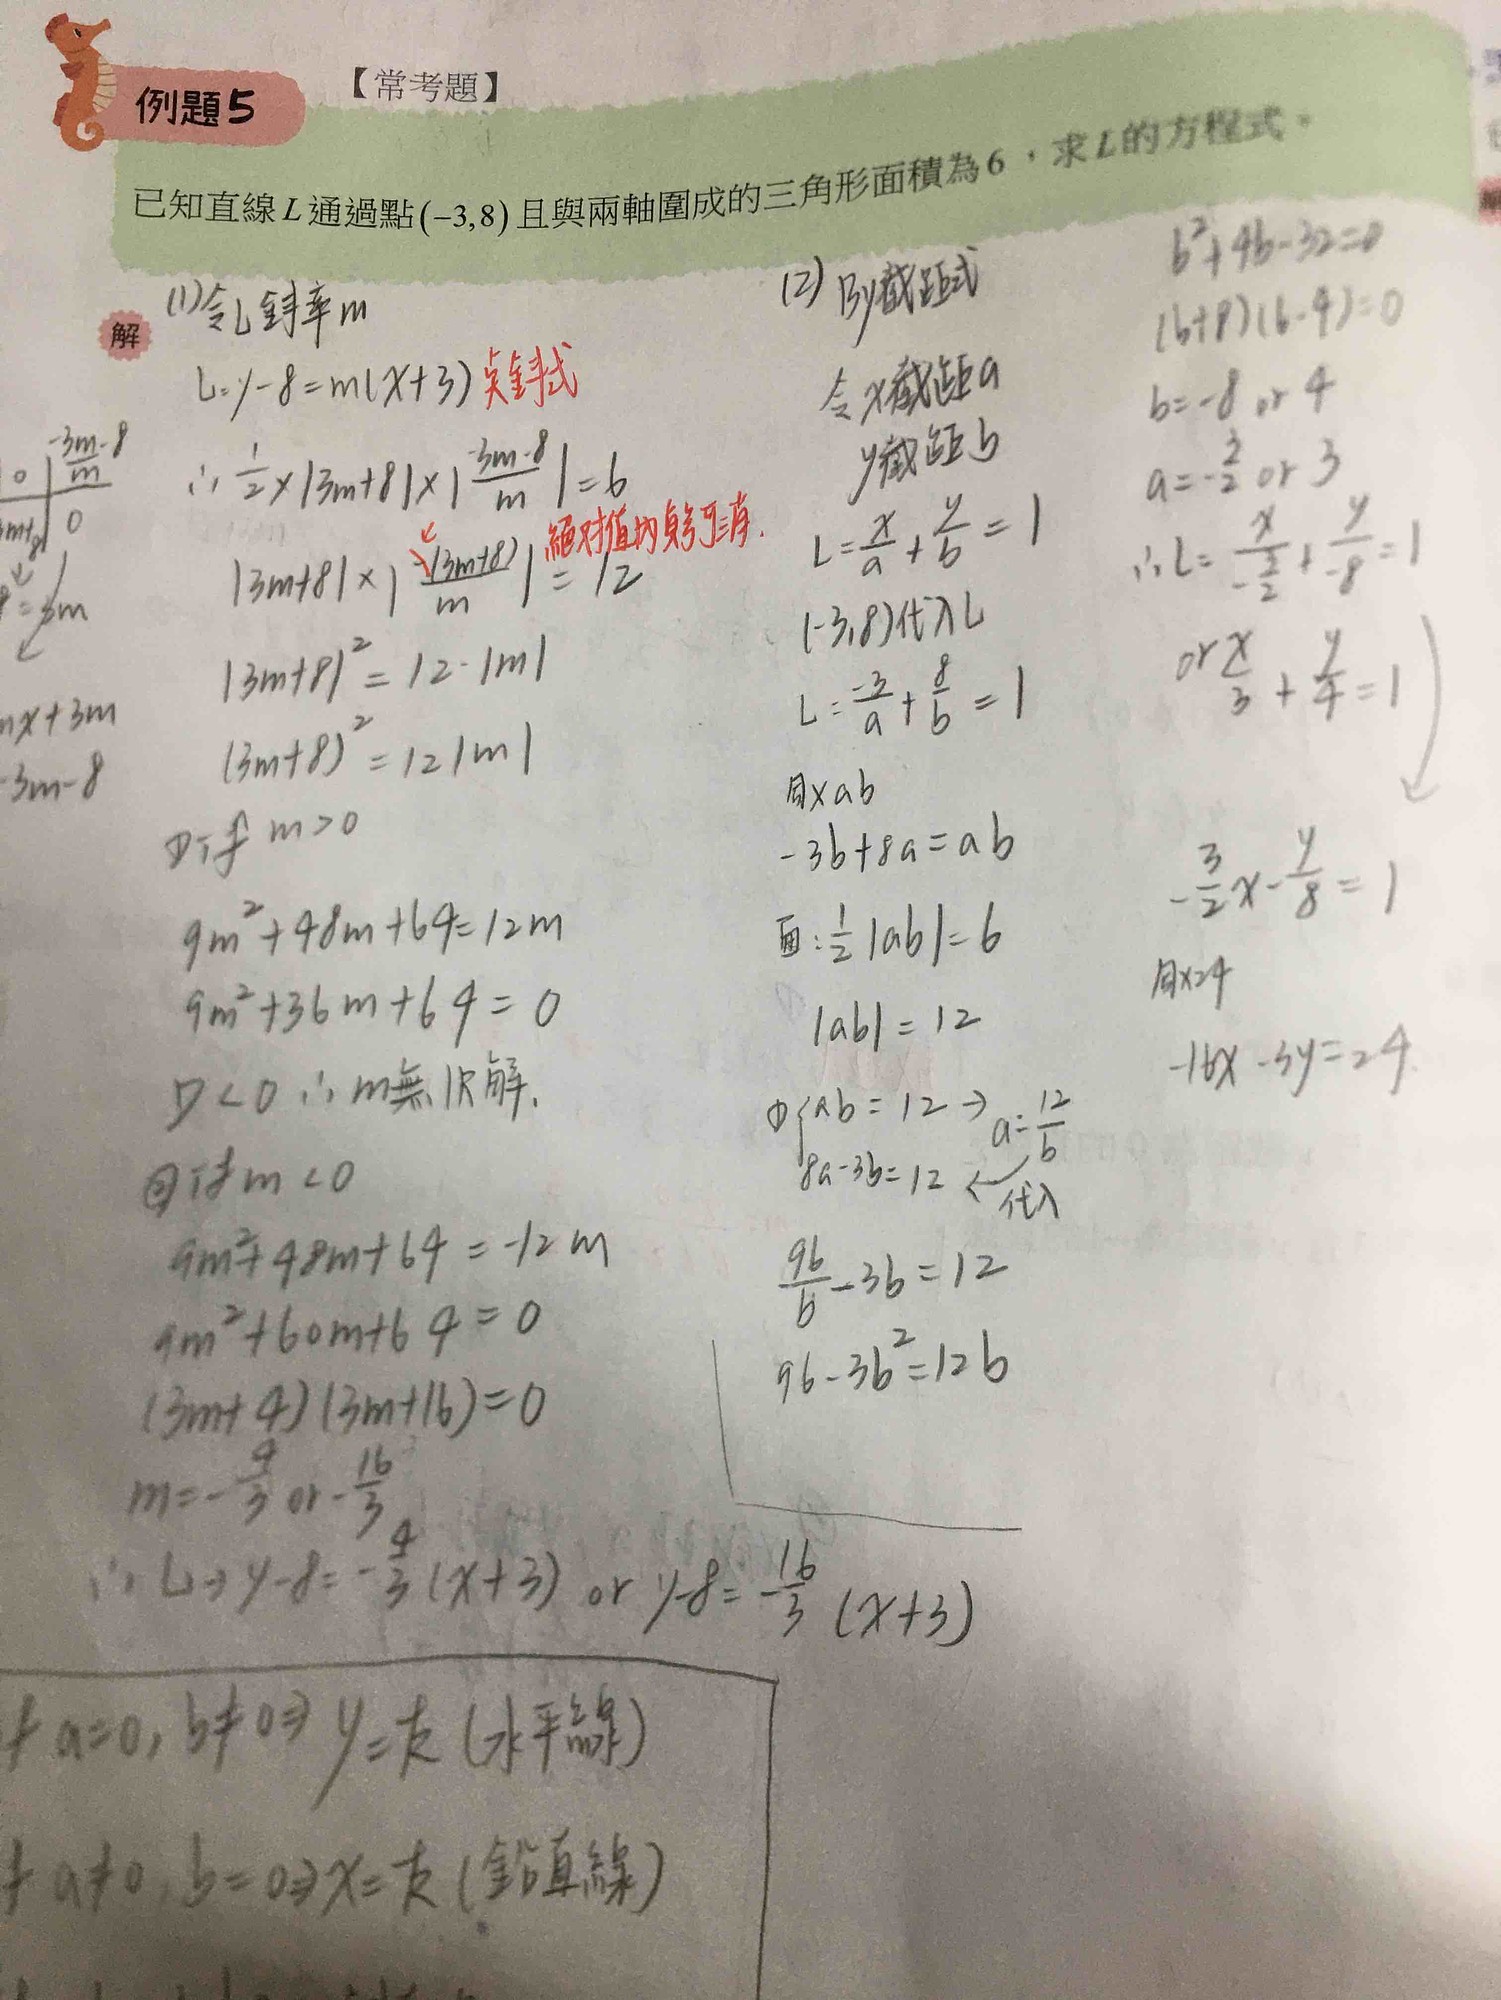 例題5
【常考題】
已知直線L通過點(-3,8)且與兩軸圍成的三角形面積為6，求L的方程式。
解
(1)令L斜率m
L:y-8=m(x+3) 點斜式
∴ 1/2×|3m+8|×|(-3m-8)/m|=6
絕對值內負號可消.
|3m+8|×|-(3m+8)/m|=12
|3m+8|²=12·|m|
(3m+8)²=12|m|
①if m>0
9m²+48m+64=12m
9m²+36m+64=0
D<0 ∴m無實解.
②if m<0
9m²+48m+64=-12m
9m²+60m+64=0
(3m+4)(3m+16)=0
m=-4/3 or -16/3
∴ L→y-8=-4/3(x+3) or y-8=-16/3(x+3)
0 | (-3m-8)/m
3m+8 | 0
=3m
mx+3m
-3m-8
(2) By截距式
令x截距a
y截距b
L=x/a+y/b=1
(-3,8)代入L
L=-3/a+8/b=1
同×ab
-3b+8a=ab
面:1/2|ab|=6
|ab|=12
①{ab=12→a=12/b
8a-3b=12 ← 代入
96/b-3b=12
96-3b²=12b
b²+4b-32=0
(b+8)(b-4)=0
b=-8 or 4
a=-3/2 or 3
∴L=x/(-3/2)+y/-8=1
or x/3+y/4=1
-3/2x-y/8=1
同×24
-16x-3y=24
a=0,b≠0⇒y=k(水平線)
a≠0,b=0⇒x=k(鉛直線)